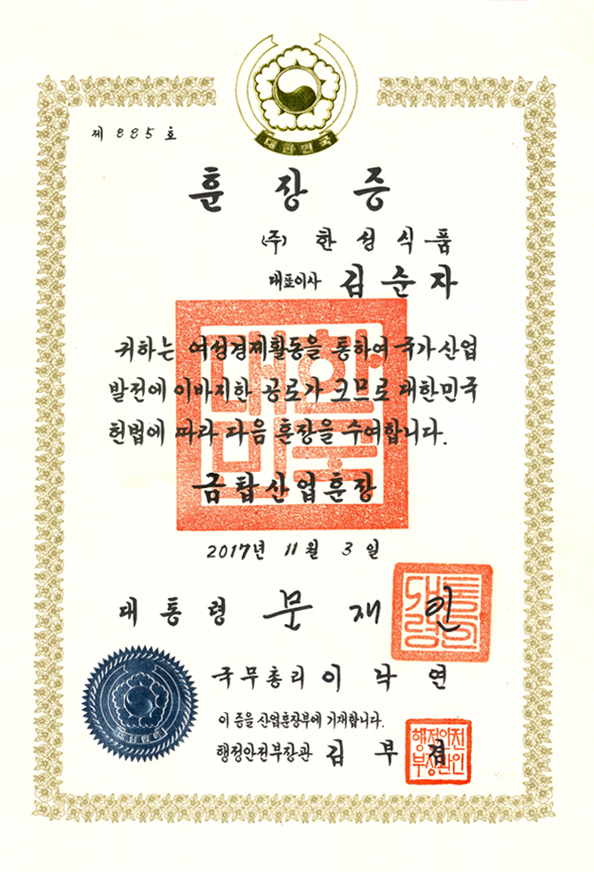 대한민국
제 885 호
훈장증
(주) 한성식품
대표이사 김순자
귀하는 여성경제활동을 통하여 국가산업
발전에 이바지한 공로가 크므로 대한민국
헌법에 따라 다음 훈장을 수여합니다.
금탑산업훈장
2017년 11월 3일
대통령 문재인
국무총리 이낙연
이 증을 산업훈장부에 기재합니다.
행정안전부장관 김부겸
대한민국
대통령인
대한민국
행정안전부장관인